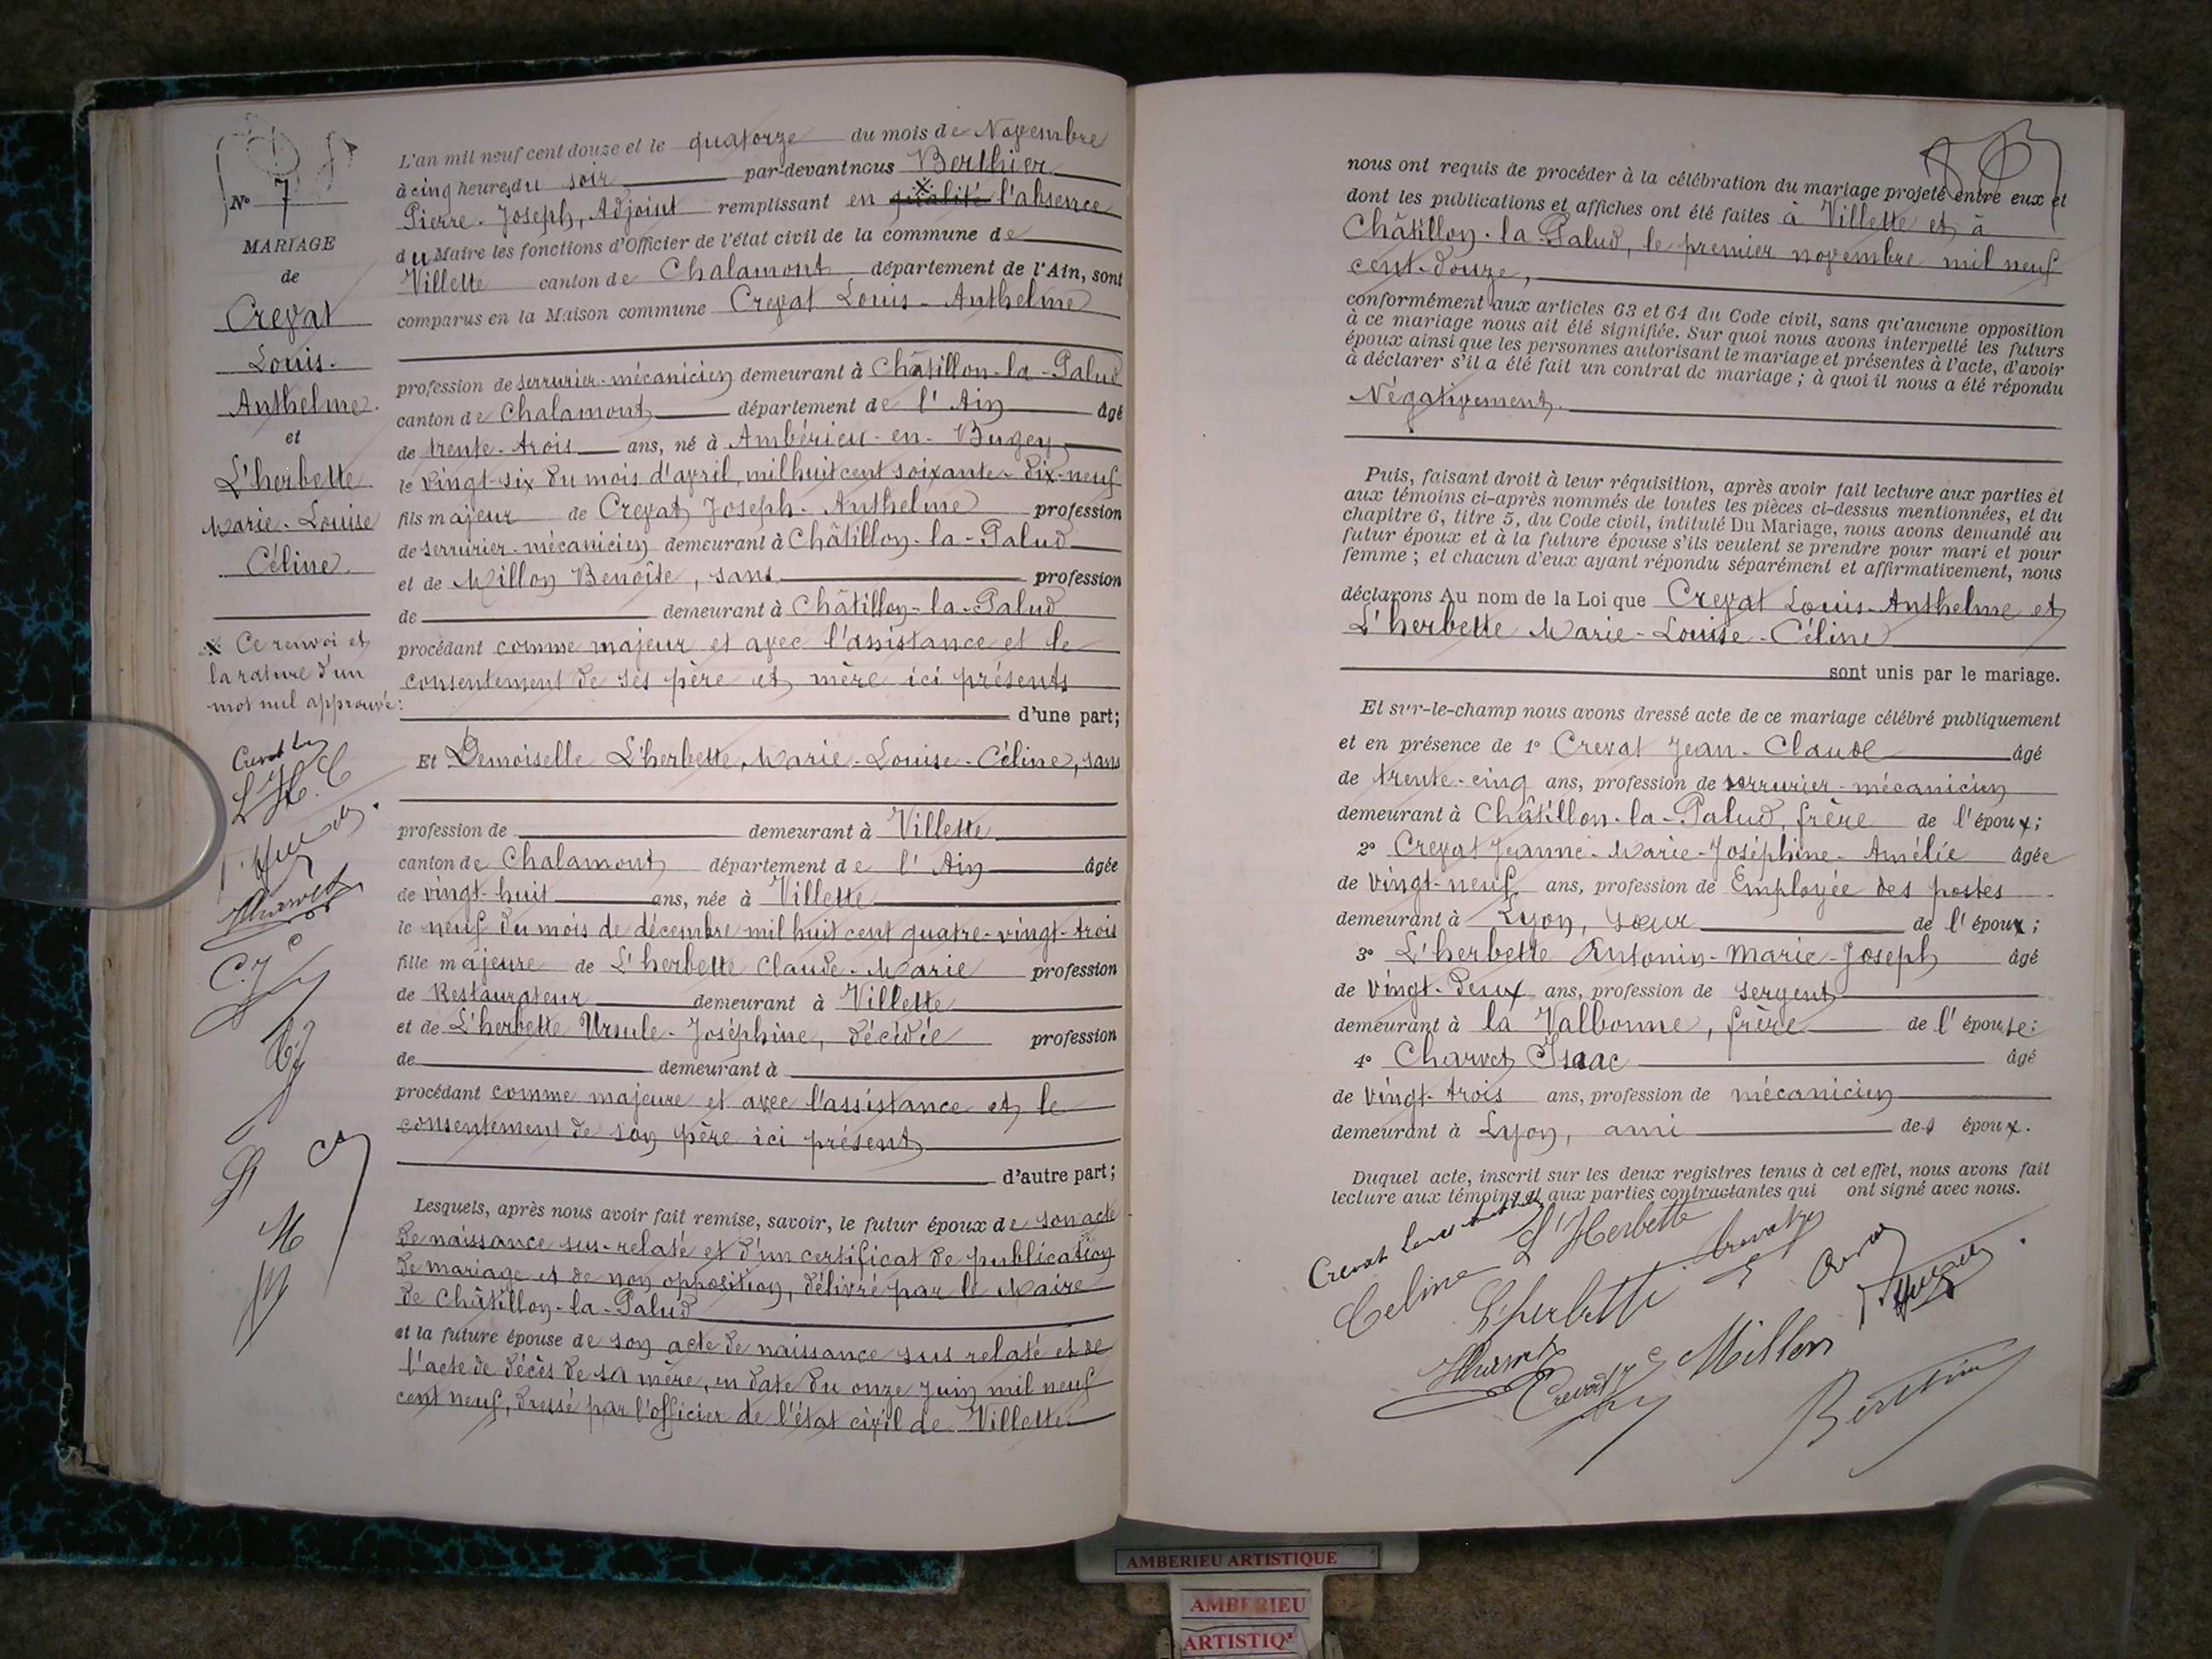 N° 7
MARIAGE
de
Crevat
Louis-
Anthelme.
et
L'herbette
Marie-Louise
Céline.
x Ce renvoi et
la rature d'un
mot nul approuvé:
L'an mil neuf cent douze et le quatorze du mois de Novembre
à cinq heures du soir par-devant nous Berthier
Pierre-Joseph, Adjoint remplissant en qualité x l'absence
du Maire les fonctions d'Officier de l'état civil de la commune de
Villette canton de Chalamont département de l'Ain, sont
comparus en la Maison commune Crevat Louis-Anthelme
profession de serrurier-mécanicien demeurant à Châtillon-la-Palud
canton de Chalamont département de l'Ain âgé
de trente-trois ans, né à Ambérieu-en-Bugey
le vingt-six du mois d'avril, mil huit cent soixante-dix-neuf
fils majeur de Crevat Joseph-Anthelme profession
de serrurier-mécanicien demeurant à Châtillon-la-Palud
et de Millon Benoîte, sans profession
de demeurant à Châtillon-la-Palud
procédant comme majeur et avec l'assistance et le
consentement de ses père et mère ici présents
d'une part;
Et Demoiselle L'herbette, Marie-Louise-Céline, sans
profession de demeurant à Villette
canton de Chalamont département de l'Ain âgée
de vingt-huit ans, née à Villette
le neuf du mois de décembre mil huit cent quatre-vingt-trois
fille majeure de L'herbette Claude-Marie profession
de Restaurateur demeurant à Villette
et de L'herbette Ursule-Joséphine, décédée profession
de demeurant à
procédant comme majeure et avec l'assistance et le
consentement de son père ici présent
d'autre part;
Lesquels, après nous avoir fait remise, savoir, le futur époux de son acte
de naissance sus-relaté et d'un certificat de publication
de mariage et de non opposition, délivré par le Maire
de Châtillon-la-Palud
et la future épouse de son acte de naissance sus relaté et de
l'acte de décès de sa mère, en date du onze Juin mil neuf
cent neuf, dressé par l'officier de l'état civil de Villette
nous ont requis de procéder à la célébration du mariage projeté entre eux et
dont les publications et affiches ont été faites à Villette et à
Châtillon-la-Palud, le premier novembre mil neuf
cent-douze,
conformément aux articles 63 et 64 du Code civil, sans qu'aucune opposition
à ce mariage nous ait été signifiée. Sur quoi nous avons interpellé les futurs
époux ainsi que les personnes autorisant le mariage et présentes à l'acte, d'avoir
à déclarer s'il a été fait un contrat de mariage; à quoi il nous a été répondu
Négativement.
Puis, faisant droit à leur réquisition, après avoir fait lecture aux parties et
aux témoins ci-après nommés de toutes les pièces ci-dessus mentionnées, et du
chapitre 6, titre 5, du Code civil, intitulé Du Mariage, nous avons demandé au
futur époux et à la future épouse s'ils veulent se prendre pour mari et pour
femme; et chacun d'eux ayant répondu séparément et affirmativement, nous
déclarons Au nom de la Loi que Crevat Louis-Anthelme et
L'herbette Marie-Louise-Céline
sont unis par le mariage.
Et sur-le-champ nous avons dressé acte de ce mariage célébré publiquement
et en présence de 1° Crevat Jean-Claude âgé
de trente-cinq ans, profession de serrurier-mécanicien
demeurant à Châtillon-la-Palud, frère de l'époux;
2° Crevat Jeanne-Marie-Joséphine-Amélie âgée
de vingt-neuf ans, profession de Employée des postes
demeurant à Lyon, sœur de l'époux;
3° L'herbette Antonin-Marie-Joseph âgé
de vingt-deux ans, profession de sergent
demeurant à la Valbonne, frère de l'épouse;
4° Charvet Isaac âgé
de vingt-trois ans, profession de mécanicien
demeurant à Lyon, ami des époux.
Duquel acte, inscrit sur les deux registres tenus à cet effet, nous avons fait
lecture aux témoins et aux parties contractantes qui ont signé avec nous.
L'Herbette
Celine L'herbette
Millon
Berthier
AMBERIEU ARTISTIQUE
AMBERIEU
ARTISTIQ